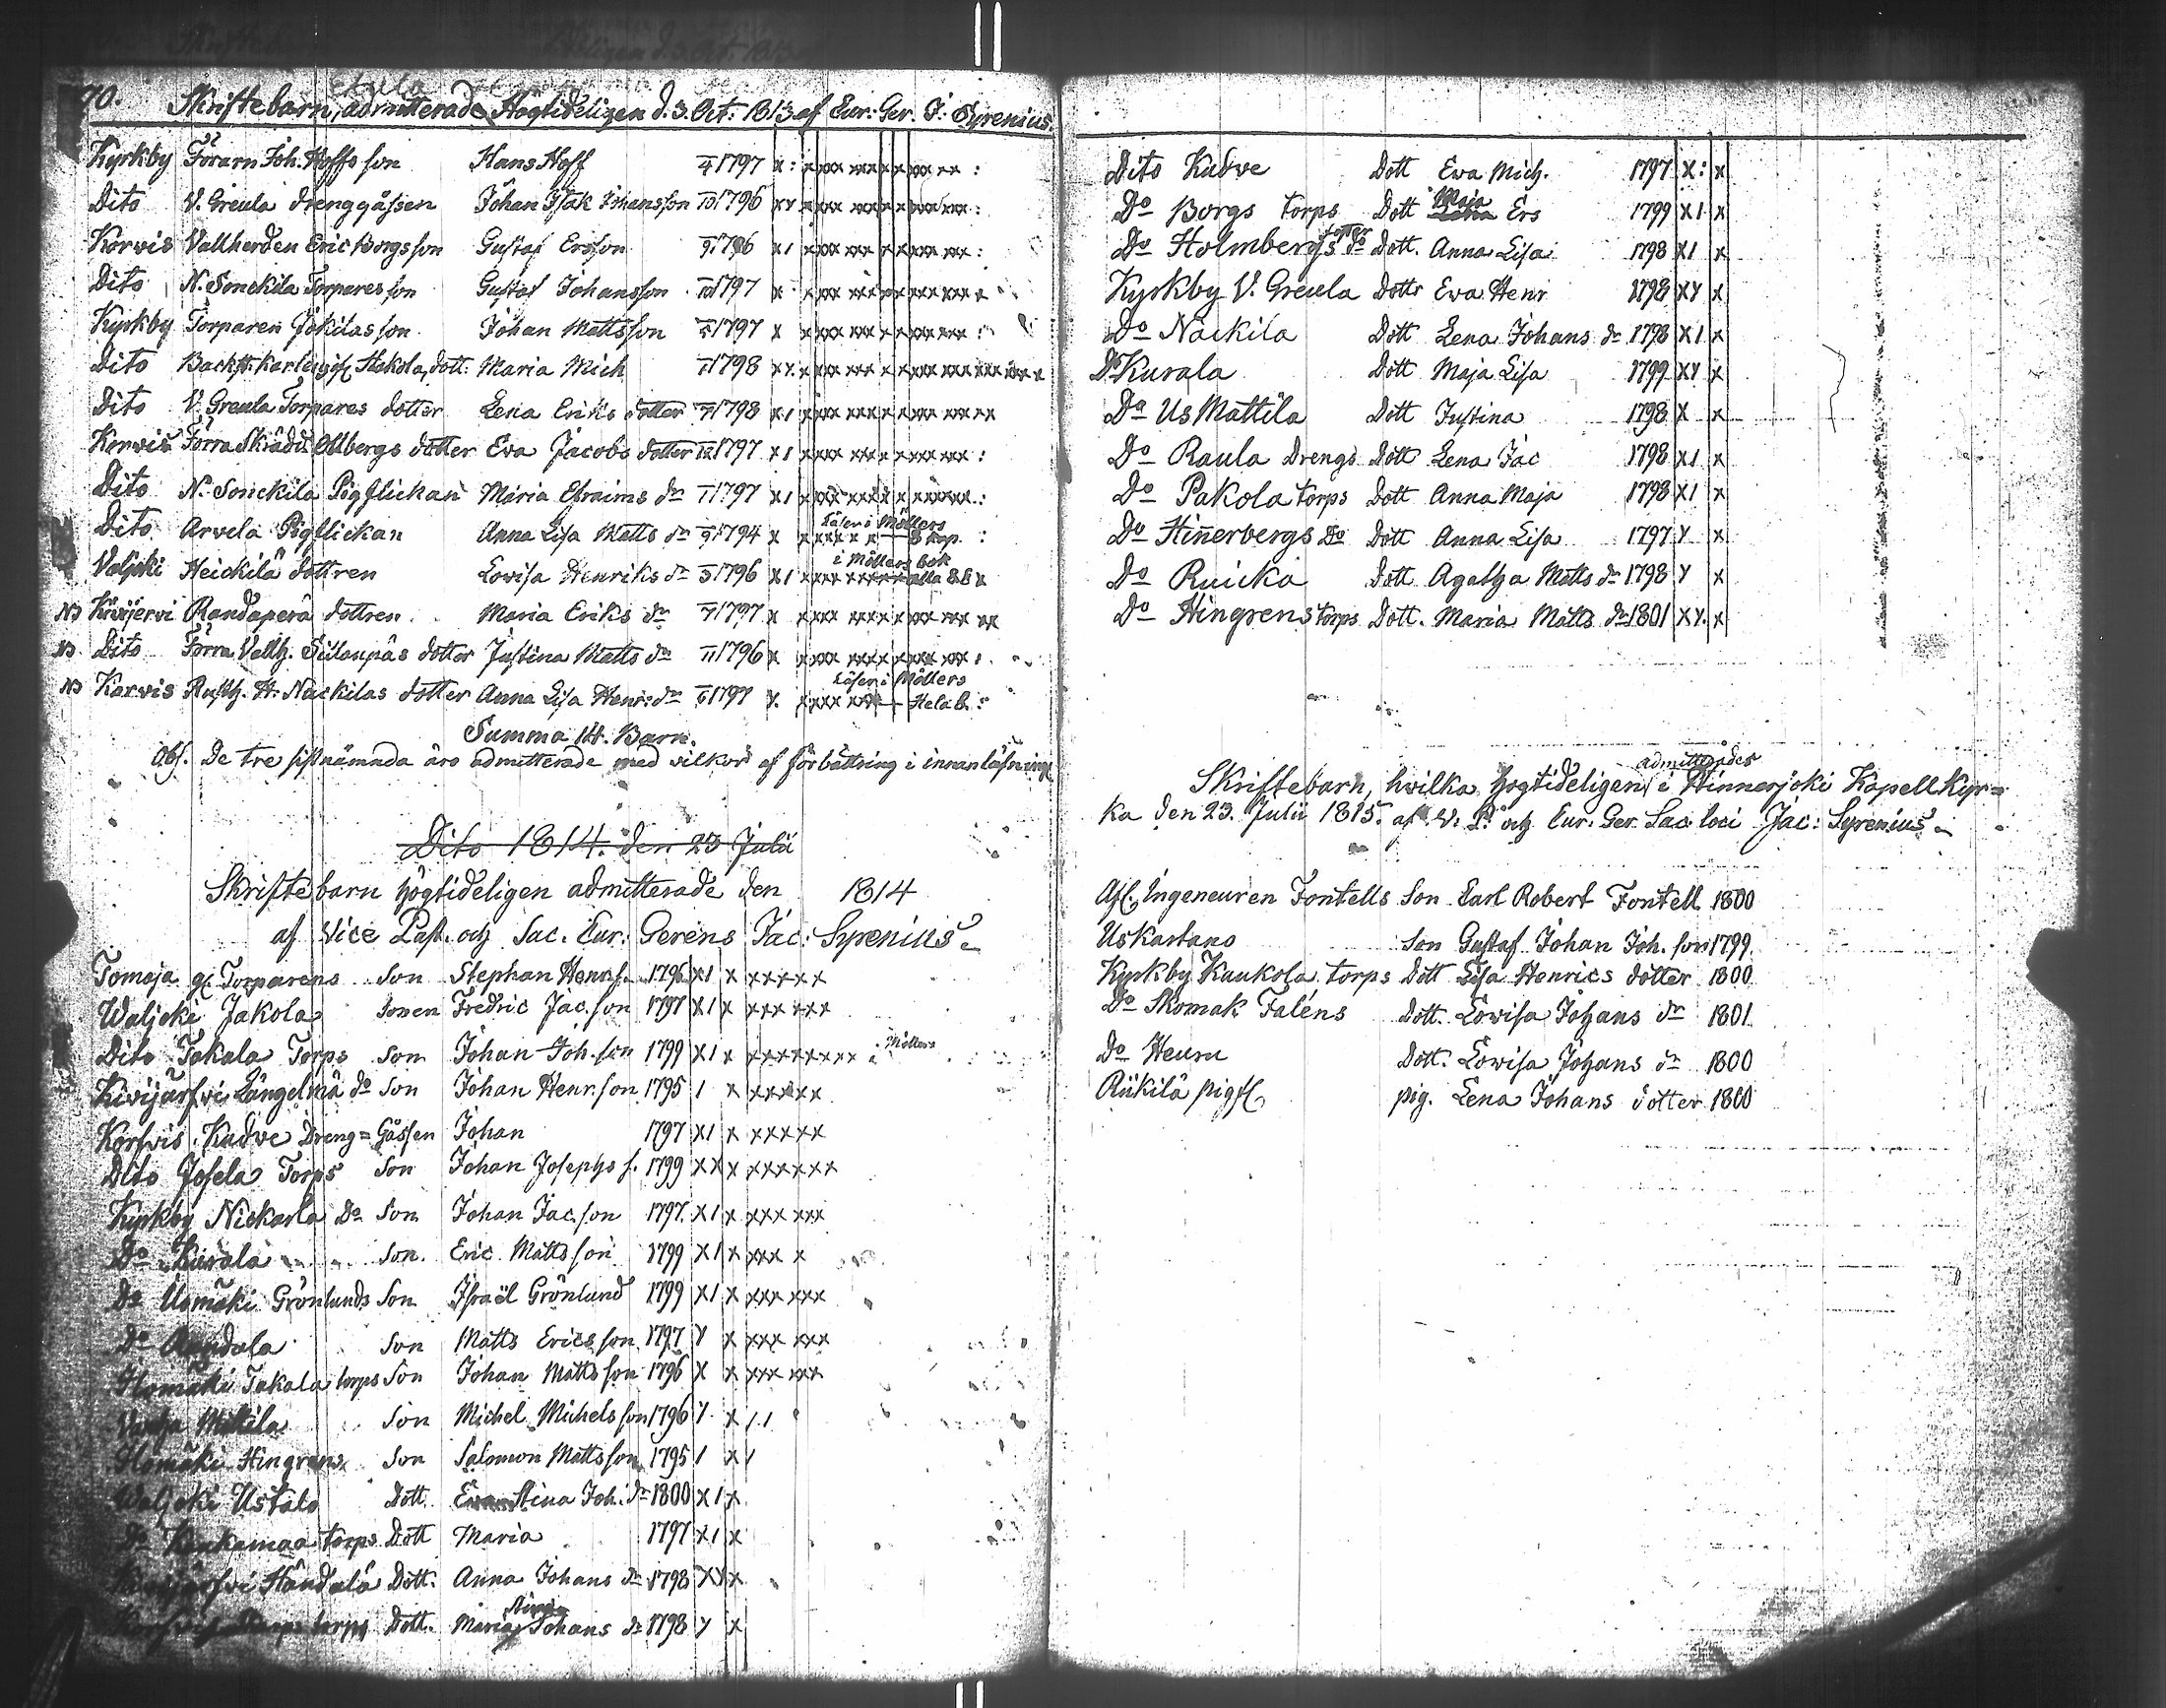 70. Skriftebarn, admitterade Högtideligen d. 3. Oct: 1813 af Cur: Ger. J: Syrenius.
Kyrkby Förarn Joh. Hoffs son Hans Hoff 1797
Dito V. Greula drenggåssen Johan Isak Johansson 1796
Korvis Vallherden Eric Borgs son Gustaf Ersson 1796
Dito N. Sonckila Torpares son Gustaf Johansson 1797
Kyrkby Torparen Jokilas son Johan Mattsson 1797
Dito Hakola, dott: Maria Mich 1798
Dito V. Greula Torpares dotter Lena Eriks dotter 1798
Korvis Förra Skrädd. Ollbergs dotter Eva Jacobs dotter 1797
Dito N. Sonckila Pigflickan Maria Efraims dr 1797
Dito Arvela Pigflickan Anna Lisa Matts dr 1794 Läser i Möllers
Valjoki Heickilä dottren Lovisa Henriks dr 1796 i Möllers bok alla
NB Kivijervi Randaperä dottren Maria Eriks dr 1797
NB Dito Förra Vallh. Siltanpäs dotter Justina Matts dr 1796
NB Karvis Rusth. H. Nackilas dotter Anna Lisa Henr: dr 1797 Läser i Möllers Hela b.
Summa 14. Barn.
Obs. De tre sistnämnda äro admitterade med vilkor af förbättring i innanläsning
Dito 1814. den 23 Julii
Skriftebarn högtideligen admitterade den 1814
af Vice Past. och Sac. Cur: Gerens Jac: Syrenius.
Tomaja Torparens Son Stephan Henr.s. 1796
Waljoki Jakola Sonen Fredric Jac.son 1797
Dito Takala Torps Son Johan Joh.son 1799 i Möllers
Kivijärfvi Längelmä do Son Johan Henr.son 1795
Korfvis Kudve Dreng=Gåssen Johan 1797
Dito Josela Torps Son Johan Josephs s. 1799
Kyrkby Nickarla Do Son Johan Jac.son 1797
Do Kurala Son Eric Mattsson 1799
Do Uomäki Grönlunds Son Israël Grönlund 1799
Do Son Matts Ericsson 1797
Takala torps Son Johan Mattsson 1796
Son Michel Michelsson 1796
Hingrens Son Salomon Mattsson 1795
Waljoki Ustalo Dott. Eva Stina Joh. dr 1800
Do Kaukamaa torps Dott Maria 1797
Handala Dott. Anna Johans dr 1798
torps Dott. Maria Stina Johans dr 1798
Dito Kudve Dott Eva Mich. 1797
Do Borgs torps Dott Maja Ers 1799
Do Holmbergs do Dott. Anna Lisa 1798
Kyrkby V. Greula Dottr Eva Henr 1798
Do Nackila Dott Lena Johans dr 1798
Do Kurala Dott Maja Lisa 1799
Do Us Mattila Dott Justina 1798
Do Raula Drengs Dott Lena Jac 1798
Do Pakola torps Dott Anna Maja 1798
Do Hinnerbergs Do Dott Anna Lisa 1797
Do Ruicka Dott Agatha Matts dr 1798
Do Hingrens torps Dott. Maria Matts dr 1801
Skriftebarn, hvilka högtideligen admitterades i Hinnerjoki Kapell Kyr=
ka den 23. Julii 1815. af V. P. och Cur. Ger Sac. loci Jac: Syrenius.
Afl. Ingeneuren Fontells Son Carl Robert Fontell 1800
Uskartano Son Gustaf Johan Joh. son 1799.
Kyrkby Kaukola torps Dott Lisa Henrics dotter 1800
Do Skomak Taléns Dott. Lovisa Johans dr 1801
Do Heuru Dott. Lovisa Johans dr 1800
Riikilä pigfl. pig. Lena Johans dotter 1800